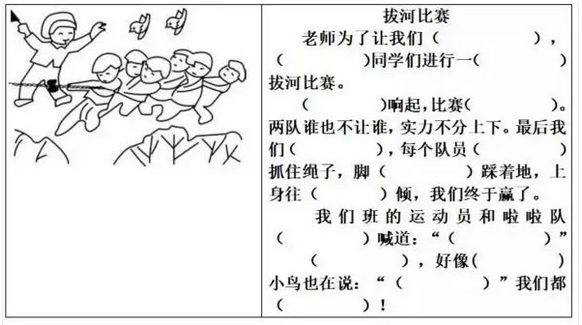 拔河比赛
老师为了让我们(          ),
(          )同学们进行一(          )
拔河比赛。
(          )响起,比赛(          )。
两队谁也不让谁,实力不分上下。最后我
们(          ),每个队员(          )
抓住绳子,脚(          )踩着地,上
身往(          )倾,我们终于赢了。
我们班的运动员和啦啦队
(          )喊道:“(          )”
(          ),好像(          )
小鸟也在说:“(          )”我们都
(          )!